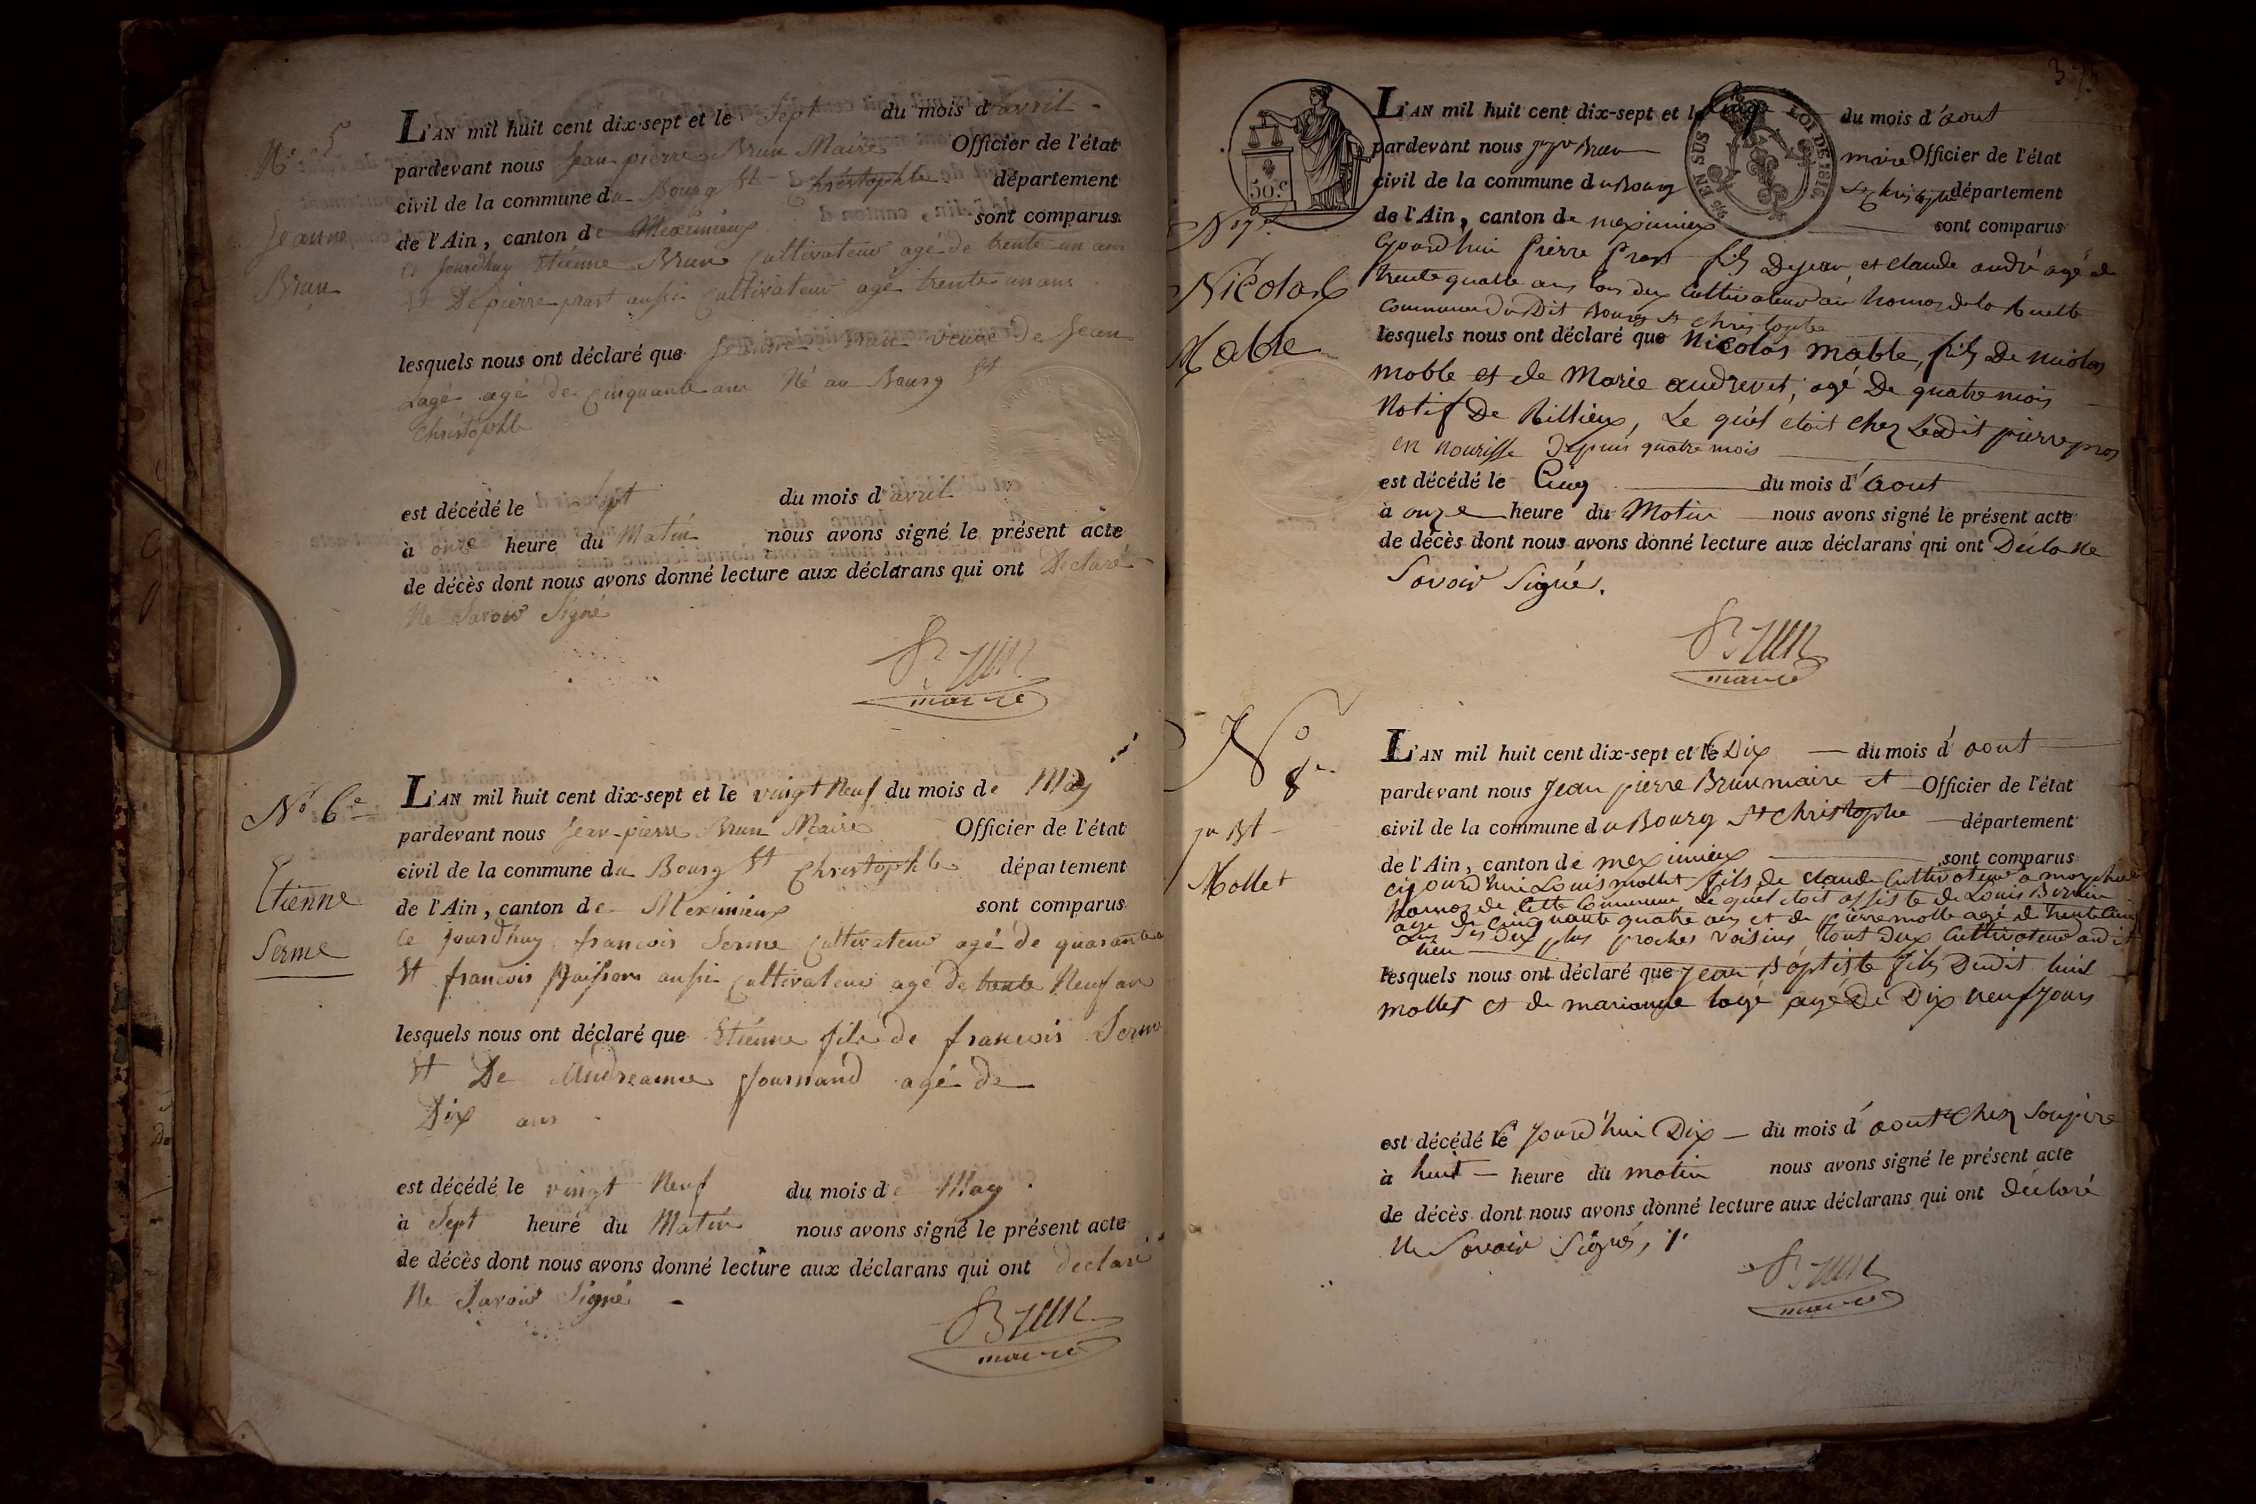 N° 5
Jeanne
Brun
L'AN mil huit cent dix-sept et le Sept du mois d'avril
pardevant nous Jean pierre Brun Maire Officier de l'état
civil de la commune du Bourg St Christophle département
de l'Ain, canton de Meximieux sont comparus
ce jourdhuy Etienne Brun Cultivateur agé de trente un ans
et De pierre prast aussi Cultivateur agé trente un ans
lesquels nous ont déclaré que Jeanne Brun veuve De Jean
Lagé agé de Cinquante ans Né au Bourg St
Christophle
est décédé le Sept du mois d'avril
à onze heure du Matin nous avons signé le présent acte
de décès dont nous avons donné lecture aux déclarans qui ont Declaré
Ne Savoir Signé
Brun
maire
N° 6e
Etienne
Serme
L'AN mil huit cent dix-sept et le vingt Neuf du mois de May
pardevant nous Jean-pierre Brun Maire Officier de l'état
civil de la commune du Bourg St Christophle département
de l'Ain, canton de Meximieux sont comparus
Ce jourdhuy francois Serme Cultivateur agé de quarante
Et francois aussi Cultivateur agé de trente Neuf an
lesquels nous ont déclaré que Etienne fils de francois Serme
Et De Andreanne Journand agé de
Dix ans
est décédé le vingt Neuf du mois de May
à Sept heure du Matin nous avons signé le présent acte
de décès dont nous avons donné lecture aux déclarans qui ont declaré
Ne Savoir Signé
Brun
maire
375
50 c
EN SUS
LOI DE 1816
N° 7e
Nicolas
Mable
L'AN mil huit cent dix-sept et le Cinq du mois d'aout
pardevant nous jn pre Brun maire Officier de l'état
civil de la commune du Bourg St Christophe département
de l'Ain, canton de meximieux sont comparus
cejourd'hui Pierre Prost fils De jean et claude andré agé de
trente quatre ans tous deux Cultivateur au hamos de la Ruelle
Commune du Dit Bourg St Christophe
lesquels nous ont déclaré que Nicolas mable, fils De nicolas
mable et de Marie audrevet, agé De quatre mois
Natif De Rillieux, Le quel étoit chez Ledit pierre pros
en nourisse depuis quatre mois
est décédé le Cinq du mois d'Aout
à onze heure du Matin nous avons signé le présent acte
de décès dont nous avons donné lecture aux déclarans qui ont Déclaré Ne
Savoir Signé.
Brun
maire
N° 8e
jn Bt
Mollet
L'AN mil huit cent dix-sept et le Dix du mois d'aout
pardevant nous Jean pierre Brun maire et Officier de l'état
civil de la commune du Bourg St Christophe département
de l'Ain, canton de meximieux sont comparus
cejourd'hui Louis mollet fils de claude Cultivateur a
hamos de cette Commune le quel étoit assisté de Louis
agé de cinquante quatre ans et de pierre motte agé de trente
ans ses deux plus proches voisins, tout deux Cultivateur audit
lieu
lesquels nous ont déclaré que Jean Baptiste fils Dudit
mollet et de marianne lagé agé De Dix neuf jours
est décédé le jourd'hui Dix du mois d'aout chez son père
à huit heure du matin nous avons signé le présent acte
de décès dont nous avons donné lecture aux déclarans qui ont déclaré
Ne Savoir Signés,
Brun
maire